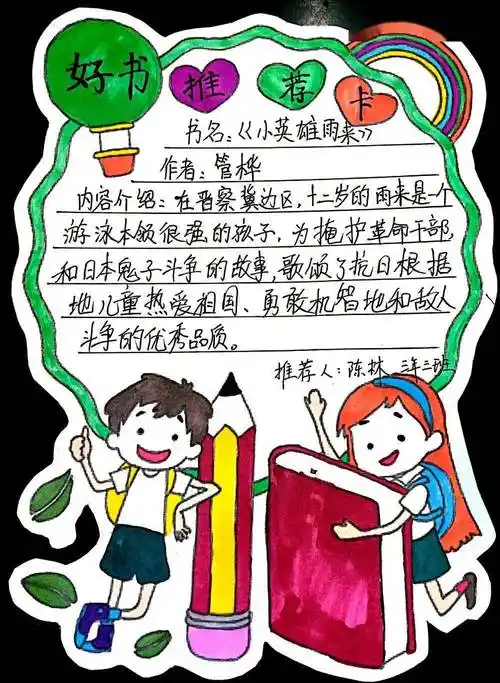 好书推荐卡
书名：《小英雄雨来》
作者：管桦
内容介绍：在晋察冀边区，十二岁的雨来是个
游泳本领很强的孩子，为掩护革命干部，
和日本鬼子斗争的故事，歌颂了抗日根据
地儿童热爱祖国、勇敢机智地和敌人
斗争的优秀品质。
推荐人：陈林 三年三班